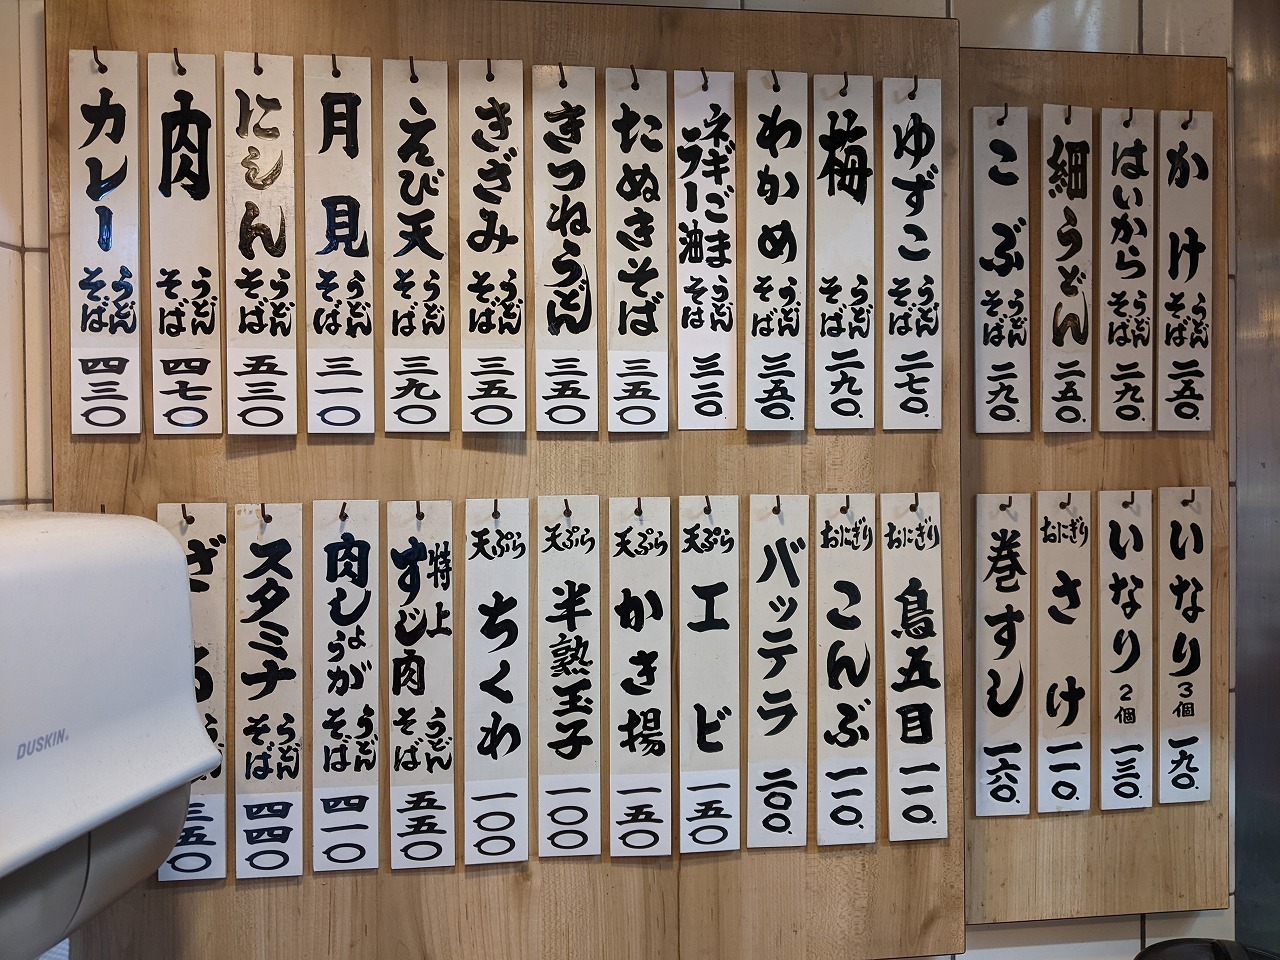 かけ うどん そば 二五〇
はいから うどん そば 二九〇
細うどん 二五〇
こぶ うどん そば 二九〇
ゆずこ うどん そば 二七〇
梅 うどん そば 二九〇
わかめ うどん そば 三五〇
ネギごまラー油 うどん そば
たぬきそば 三五〇
きつねうどん 三五〇
きざみ うどん そば 三五〇
えび天 うどん そば 三九〇
月見 うどん そば 三一〇
にしん うどん そば 五三〇
肉 うどん そば 四七〇
カレー うどん そば 四三〇
いなり 3個 一九〇
いなり 2個 一三〇
おにぎり さけ 一一〇
巻すし 一六〇
おにぎり 鳥五目 一一〇
おにぎり こんぶ 一一〇
バッテラ 二〇〇
天ぷら エビ 一五〇
天ぷら かき揚 一五〇
天ぷら 半熟玉子 一〇〇
天ぷら ちくわ 一〇〇
特上 すじ肉 うどん そば 五五〇
肉しょうが うどん そば 四一〇
スタミナ うどん そば 四四〇
ざる 三五〇
DUSKIN